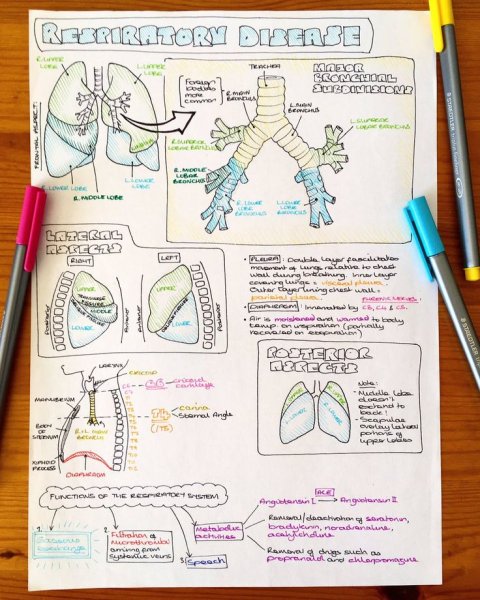 RESPIRATORY DISEASE
R.UPPER LOBE
L.UPPER LOBE
FRONTAL ASPECT:
LINGULA
R.LOWER LOBE
L.LOWER LOBE
R.MIDDLE LOBE
TRACHEA
MAJOR BRONCHIAL SUBDIVISIONS
Foreign bodies more common
R.MAIN BRONCHUS
L.MAIN BRONCHUS
L.SUPERIOR LOBAR BRONCHUS
R.SUPERIOR LOBAR BRONCHUS
R.MIDDLE LOBAR BRONCHUS
R.LOWER LOBE BRONCHUS
L.LOWER LOBE BRONCHUS
LATERAL ASPECTS
RIGHT
LEFT
UPPER
TRANSVERSE FISSURE
MIDDLE
LOWER
UPPER
LOWER
• PLEURA: Double layer facilitates
movement of lungs relative to chest
wall during breathing. Inner layer
covering lungs = visceral pleura.
Outer layer lining chest wall =
parietal pleura.
PHRENIC NERVE
• DIAPHRAGM: Innervated by C3, C4 & C5.
• Air is moistened and warmed to body
temp. on inspiration (partially
recovered on expiration)
POSTERIOR ASPECTS
UPPER
UPPER
R.LOWER
L.LOWER
Note:
• Middle lobe
doesn't
extend to
back!
• Scapulae
overlay lateral
portions of
upper lobes
LARYNX
CRICOID
C6
cricoid cartilage
MANUBRIUM
BODY OF STERNUM
XIPHOID PROCESS
R+L MAIN BRONCHI
DIAPHRAGM
T4
(/T5)
carina
Sternal Angle
FUNCTIONS OF THE RESPIRATORY SYSTEM
1. Gaseous exchange
2. Filtration of microthrombi arriving from systemic veins
3. Speech
Metabolic activities
ACE
Angiotensin I → Angiotensin II
Removal/deactivation of serotonin,
bradykinin, noradrenaline,
acetylcholine
Removal of drugs such as
propranolol and chlorpromazine
STAEDTLER
STAEDTLER